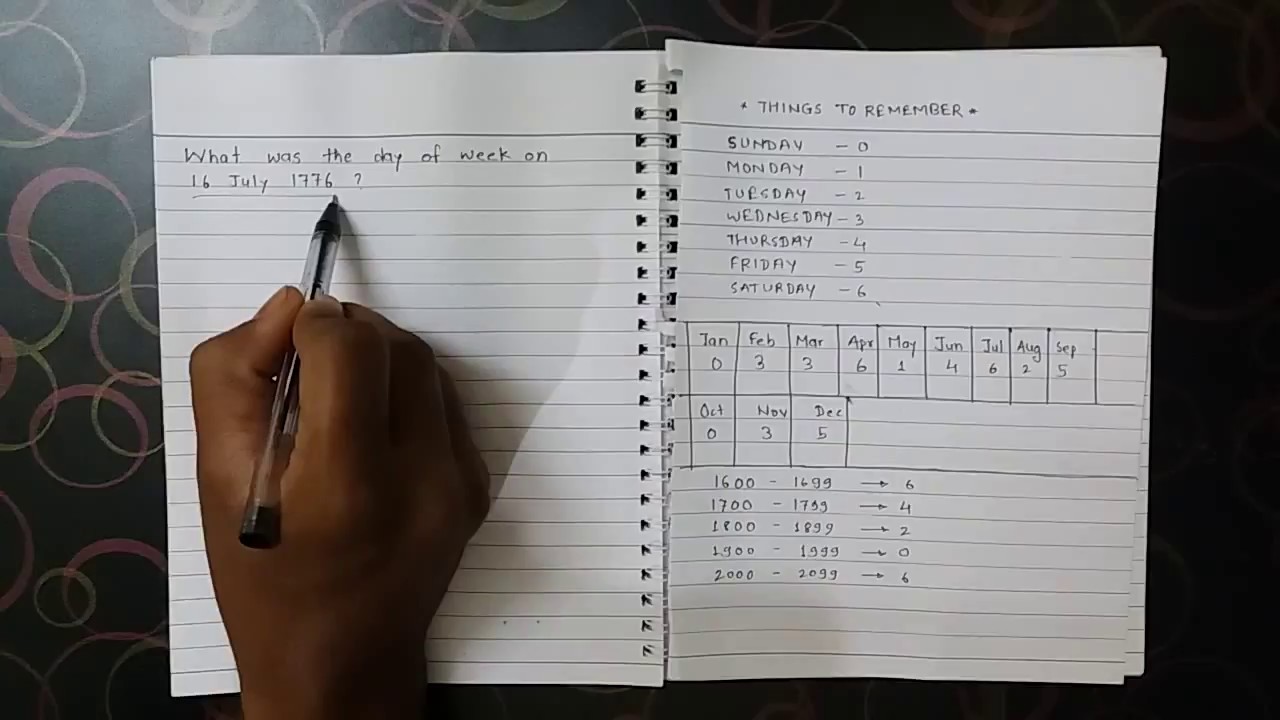 What was the day of week on
16 July 1776 ?
* THINGS TO REMEMBER *
SUNDAY - 0
MONDAY - 1
TUESDAY - 2
WEDNESDAY - 3
THURSDAY - 4
FRIDAY - 5
SATURDAY - 6
Jan Feb Mar Apr May Jun Jul Aug Sep
0 3 3 6 1 4 6 2 5
Oct Nov Dec
0 3 5
1600 - 1699 → 6
1700 - 1799 → 4
1800 - 1899 → 2
1900 - 1999 → 0
2000 - 2099 → 6